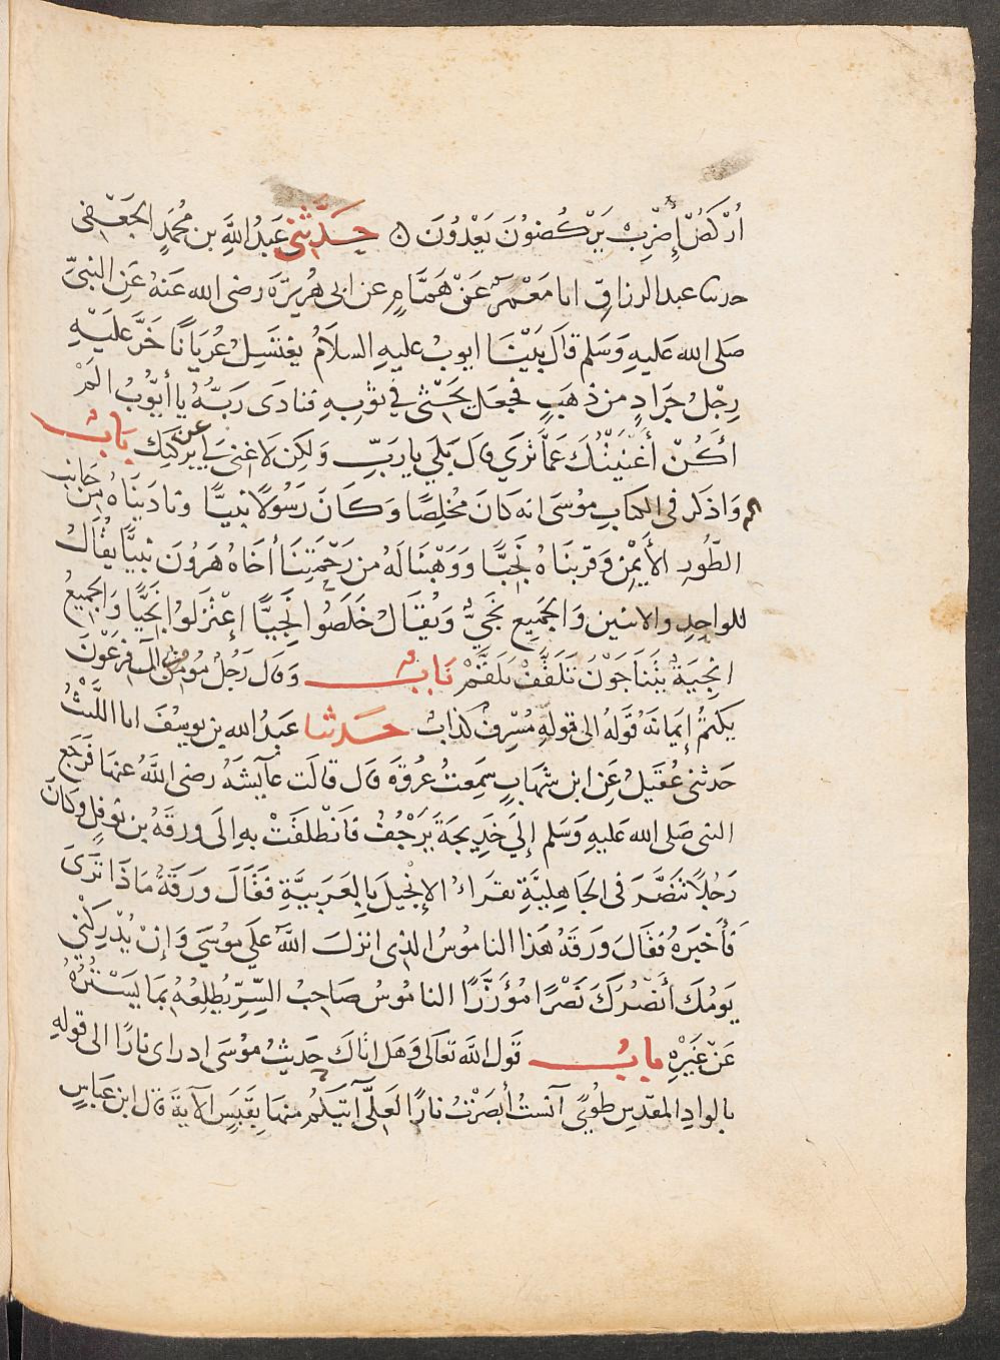 أُرْكُضْ إِضْرِبْ يَرْكُضُونَ يَعْدُونَ ه حَدَّثَنِي عَبْدُ اللَّهِ بن مُحَمَّدٍ الجُعْفِي
حدثنا عبد الرزاقِ انا مَعْمَرٌ عَنْ هَمَّامٍ عن ابى هُرَيْرَةَ رضى الله عَنهُ عَنِ النبيِّ
صَلى الله عَليهِ وَسَلم قالَ بَيْنَا ايوبُ عليهِ السلَامُ يغتَسِلُ عُرْيَانًا خَرَّ عَليْهِ
رِجْلُ جَرَادٍ من ذهَبٍ فجعَلَ يَحْثِى في ثوْبِهِ فنادَى رَبُّهُ يا أيُّوبُ الَمْ
اَكُنْ أَغْنَيْتُكَ عَمَّا تَرَى قال بَلَى يا رَبِّ وَلكِن لَا غنى لِى عن بَرَكَتِكَ بَابُ
وَاذكر فى الكتابِ موُسَى انه كانَ مُخْلِصًا وَكَانَ رَسُولًا نبيًّا ونادَيْنَاهُ مِن جَانِبِ
الطُّورِ الأَيْمَنِ وَقربنَاهُ نَجِيًّا وَوَهَبْنَا لَهُ من رَحْمَتِنَا أخَاهُ هَرُونَ نبِيًّا يُقَالُ
للواحِدِ والاثنين وَالجَمِيعِ نَجِيٌّ وَيُقَالُ خَلَصُوا نَجِيًّا إعْتَزَلوُا نَجِيًّا وَالجَمِيعُ
انجِيَةٌ يَتَنَاجَوْنَ تَلَقَّفُ تَلَقَّمُ بَابُ وَقال رَجُلٌ مُومِنٌ مِن آلِ فرعَوْنَ
يكتمُ إيمَانَهُ قَوْلُهُ الى قولهِ مُسْرِفٌ كذابٌ حَدثنا عَبْدُ الله بن يوسُفَ انا اللَّيْثُ
حَدثنى عُقَيلٌ عَنِ ابن شهَابٍ سَمِعتُ عُروَةَ قال قالَت عآيشَةُ رضى اللَّهُ عنهَا فَرَجَع
النبى صَلى الله عَليهِ وَسَلم إلى خَدِيجَةَ يَرْجُفُ فَانْطلقَتْ بهِ الَى ورقَةَ بن نَوْفلٍ وَكانَ
رَجُلًا تَنَصَّرَ فى الجَاهِليَّةِ يقرَاءُ الإنجيلَ بِالعَرَبيَّةِ فَقَالَ وَرَقَةُ مَاذَا تَرَى
فأخبَرَهُ فقَالَ وَرَقَةُ هَذا الناموُسُ الذِى انزلَ اللَّهُ عَلى موُسَى وَإِنْ يُدْرِكْنِي
يَوْمُكَ أنْصُرْكَ نَصْرًا مُؤَزَّرًا الناموُسُ صَاحِبُ السِّرِّ يُطْلِعُهُ بِمَا يَسْتُرُهُ
عَنْ غَيْرِهِ بابُ قَول اللَّه تعَالى وَهَل اتَاكَ حَديثُ موُسَى اذ راى نارًا الى قولهِ
بالوادِ المقدسِ طوًى آنستُ أَبصَرْتُ نارًا لَعَلِّى آتيكمُ منهَا بِقَبَسٍ الآيةَ قال ابن عَباسٍ